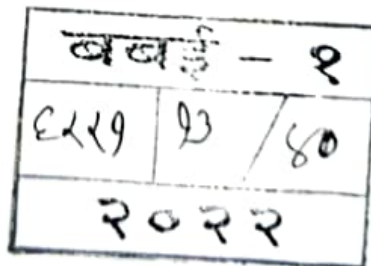 बबई - १
६२२१ १३ / ४०
२०२२